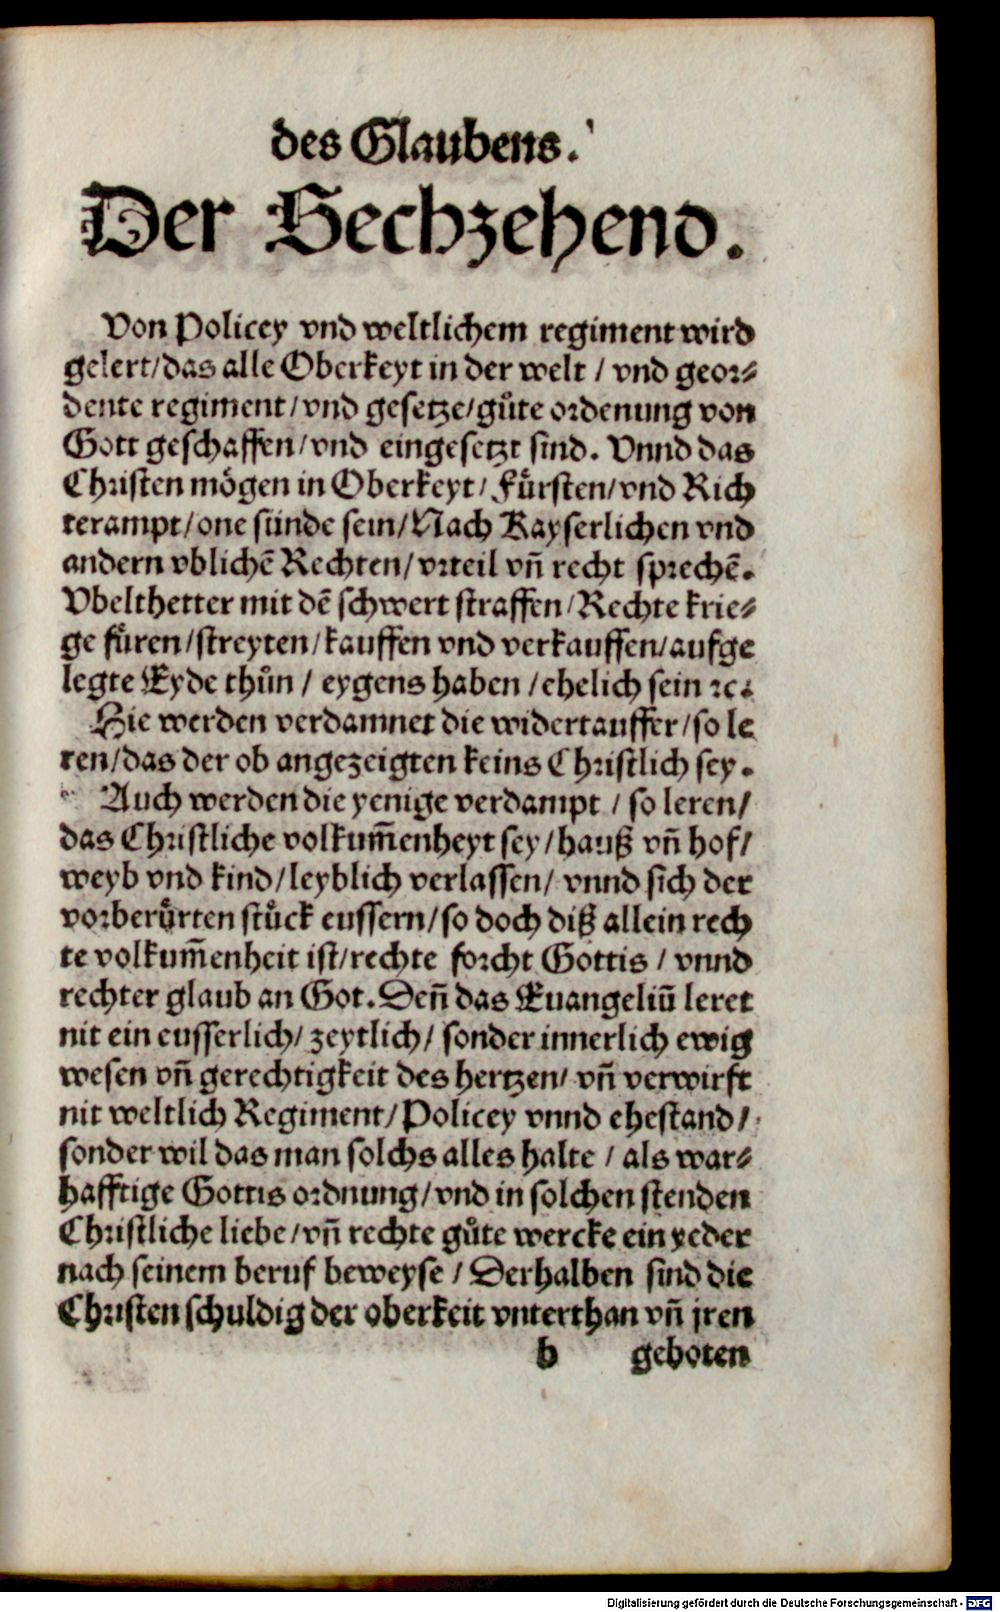 des Glaubens.
Der Sechzehend.
Von Policey vnd weltlichem regiment wird
gelert/das alle Oberkeyt in der welt / vnd geor⸗
dente regiment/vnd gesetze/gůte ordenung von
Gott geschaffen/vnd eingesetzt sind. Vnnd das
Christen mögen in Oberkeyt/ Fürsten/vnd Rich
terampt/one sünde sein/Nach Kayserlichen vnd
andern vblichē Rechten/vrteil vñ recht sprechē.
Vbelthetter mit dē schwert straffen/Rechte krie⸗
ge füren/streyten/kauffen vnd verkauffen/aufge
legte Eyde thůn / eygens haben /ehelich sein ꝛc.
Hie werden verdamnet die widertauffer/so le
ren/das der ob angezeigten keins Christlich sey.
Auch werden die yenige verdampt / so leren/
das Christliche volkum̄enheyt sey/hauß vñ hof/
weyb vnd kind/leyblich verlassen/ vnnd sich der
vorberůrten stůck eussern/so doch diß allein rech
te volkum̄enheit ist/rechte forcht Gottis / vnnd
rechter glaub an Got. Deñ das Euangeliū leret
nit ein eusserlich/ zeytlich/ sonder innerlich ewig
wesen vñ gerechtigkeit des hertzen/ vñ verwirft
nit weltlich Regiment/Policey vnnd ehestand/
sonder wil das man solchs alles halte / als war⸗
hafftige Gottis ordnung/vnd in solchen stenden
Christliche liebe/vñ rechte gůte wercke ein yeder
nach seinem beruf beweyse / Derhalben sind die
Christen schuldig der oberkeit vnterthan vñ jren
b geboten
Digitalisierung gefördert durch die Deutsche Forschungsgemeinschaft - DFG